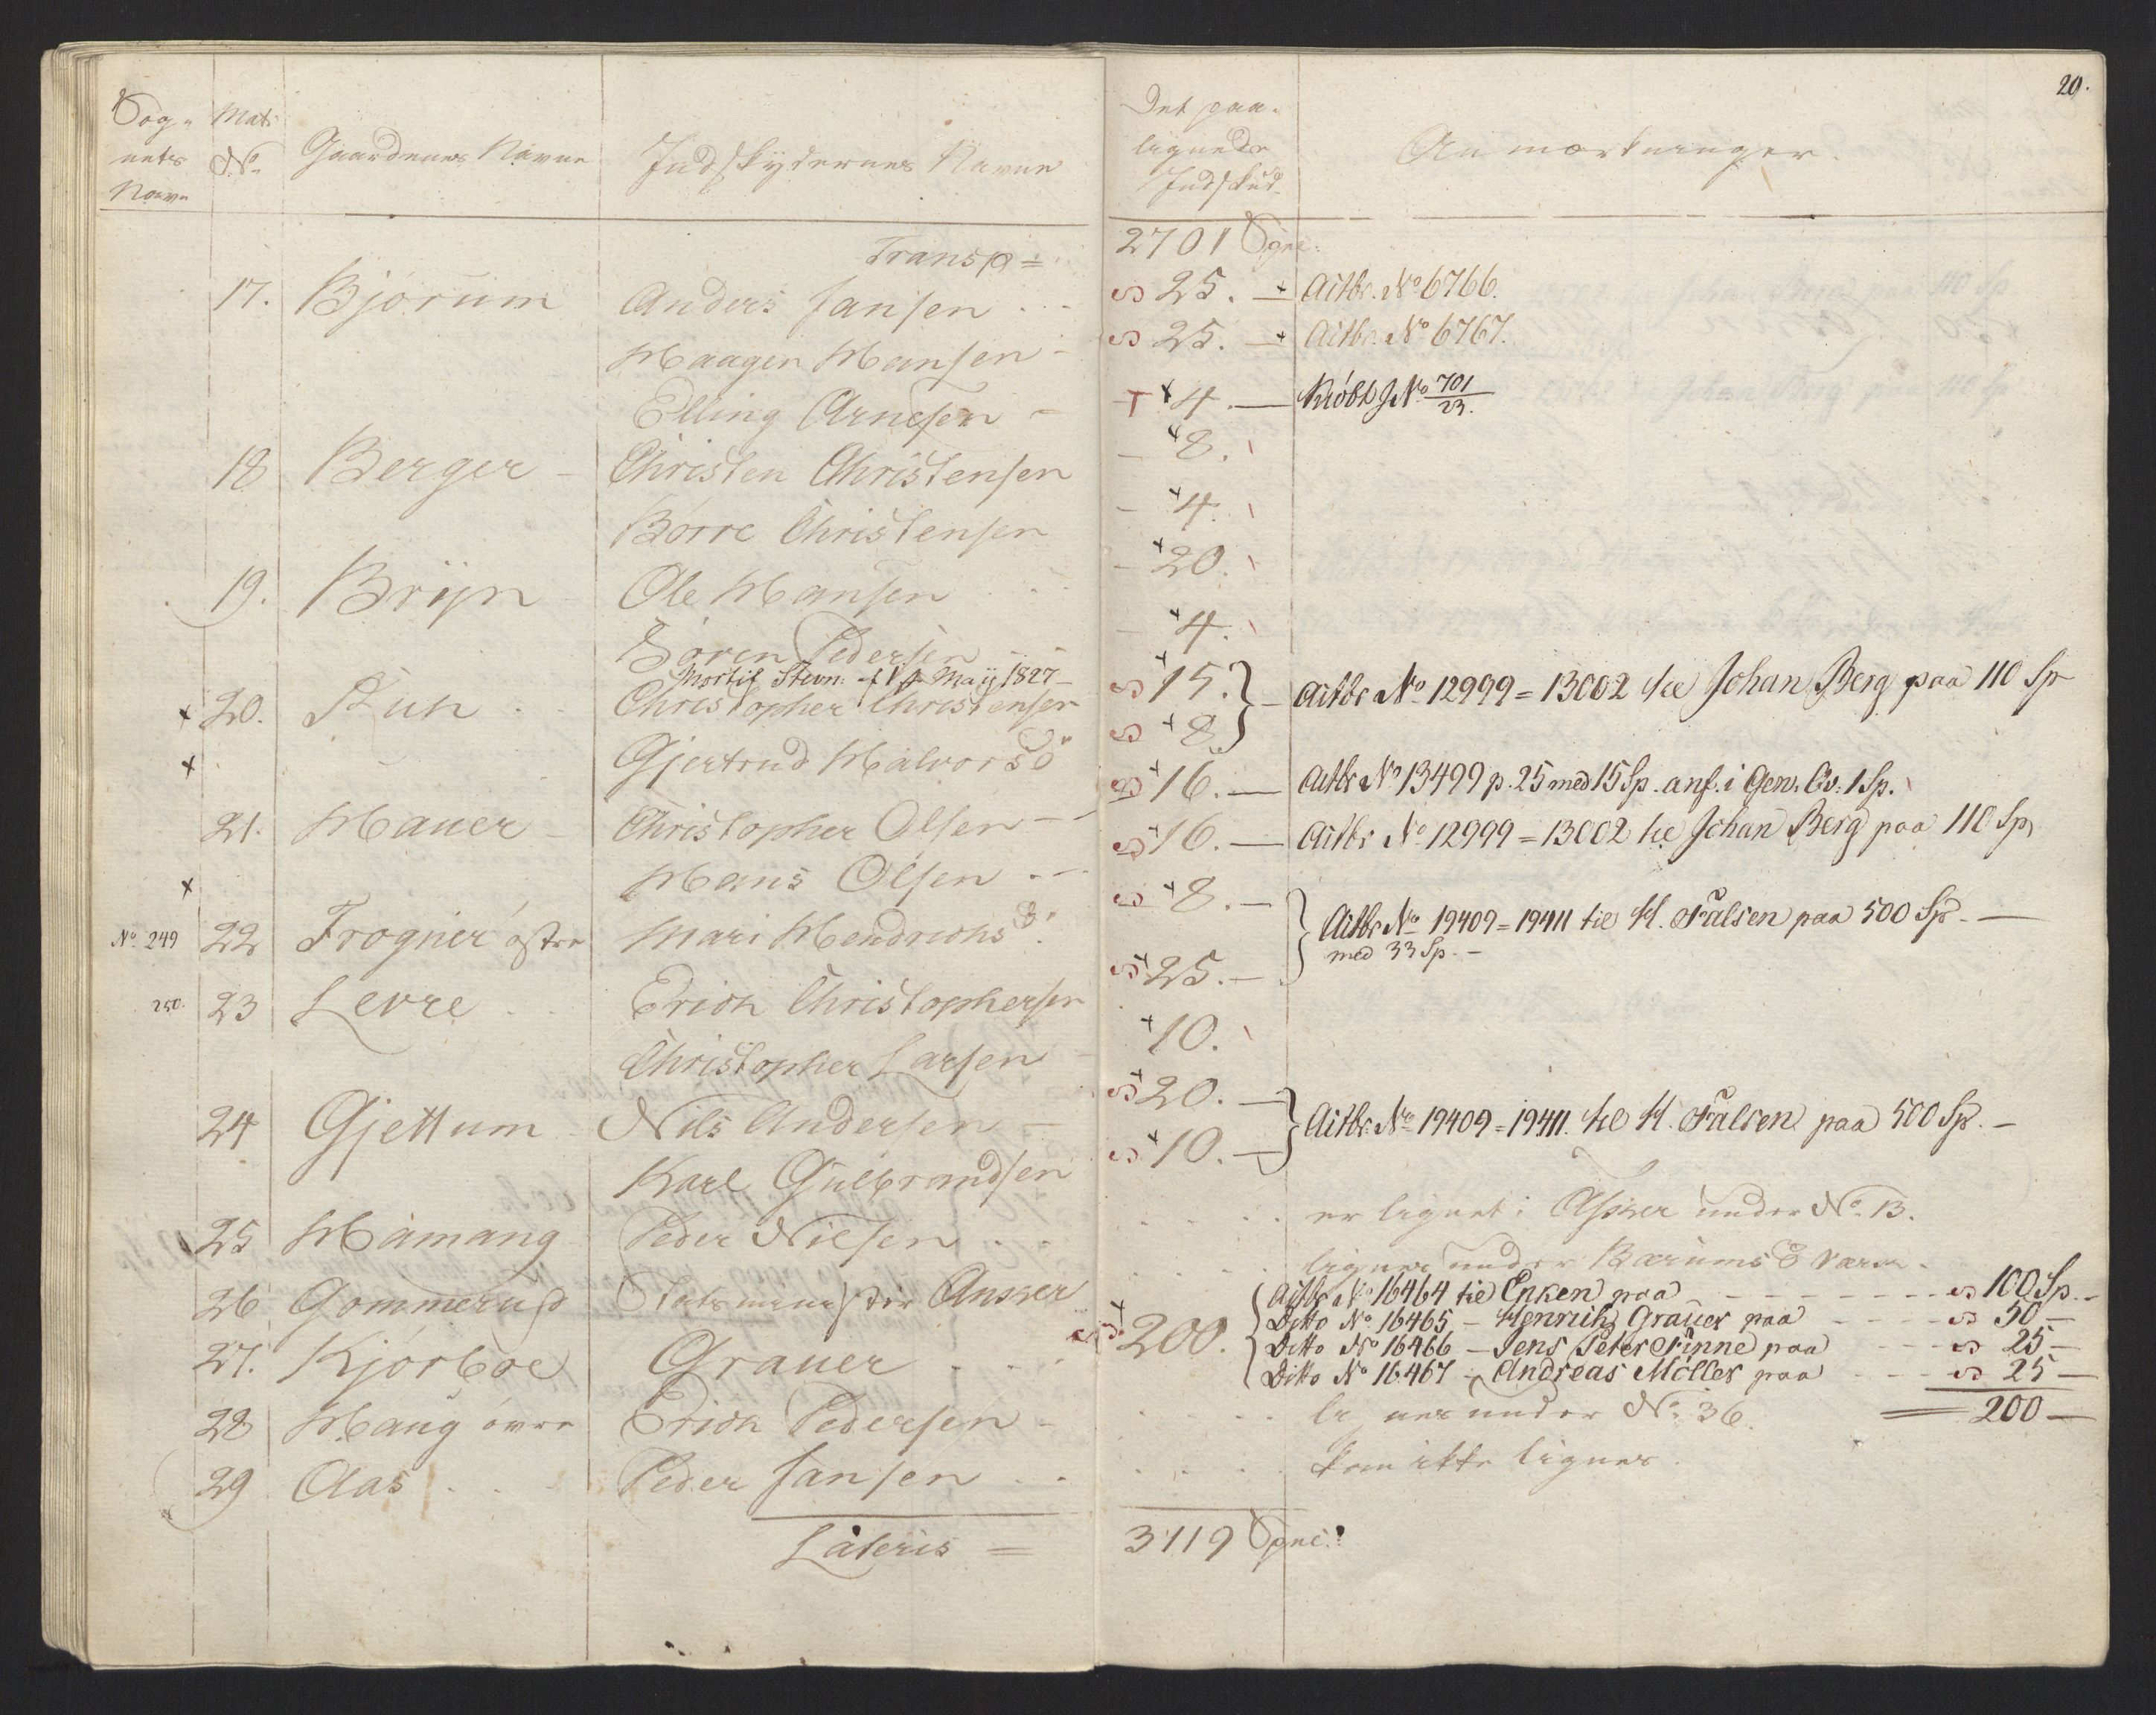 Sog-
nets
Navn
Mat:
No.
Gaardenes Navne
Indskydernes Navne
Transp =
17. Bjørum Anders Jansen
Haagen Hansen
Elling Arnesen
18 Berger - Christen Christensen
Børre Christensen
19. Brÿn Ole Hansen
Søren Pedersen
Mortif Stevn: May 1827
x 20. Christopher Christensen
x Gjertrud Halvorsd
21. Hauer - Christopher Olsen
x Hans Olsen
No. 249 22 Frogner østre Mari Hendrichsd
250. 23 Levre Erich Christophersen
Christopher Larsen
24 Gjettum Nils Andersen
Karl Gulbrandsen
25 Hamang Peder Nilsen
26 Gommerud Anker
27. Kjørboe Grauer
28 Haug øvre Erich Pedersen
29 Aas Peder Jansen
Lateris =
20.
Det paa-
lignede
Indskud
Anmærkninger.
2701 Spec:
25. Actbr. No 6766.
25. Actbr. No 6767.
4. No 701/23.
8.
4.
20.
4.
15. } Actbr No 12999 = 13002 til Johan Berg paa 110 Sp
8.
16. Actbr No 13499 p. 25 med 15 Sp. anf. i Gen. 1 Sp.
16. Actbr No 12999 = 13002 til Johan Berg paa 110 Sp
8. } Actbr No 19409 = 19411 til H. Falsen paa 500 Sp
med 33 Sp.
25.
10.
20. } Actbr. No 19409 = 19411. til H. Falsen paa 500 Sp.
10.
er lignet i Asker under No. 13.
lignes under Bærums Værn.
Actbr No 16464 til Enken paa 100 Sp.
200. Ditto No 16465 - Henrich Grauer paa 50
Ditto No 16466 - Jens Peter Finne paa 25
Ditto No 16467 - Andreas Möller paa 25
lignes under No. 36. 200
kan ikke lignes.
3119 Spec: